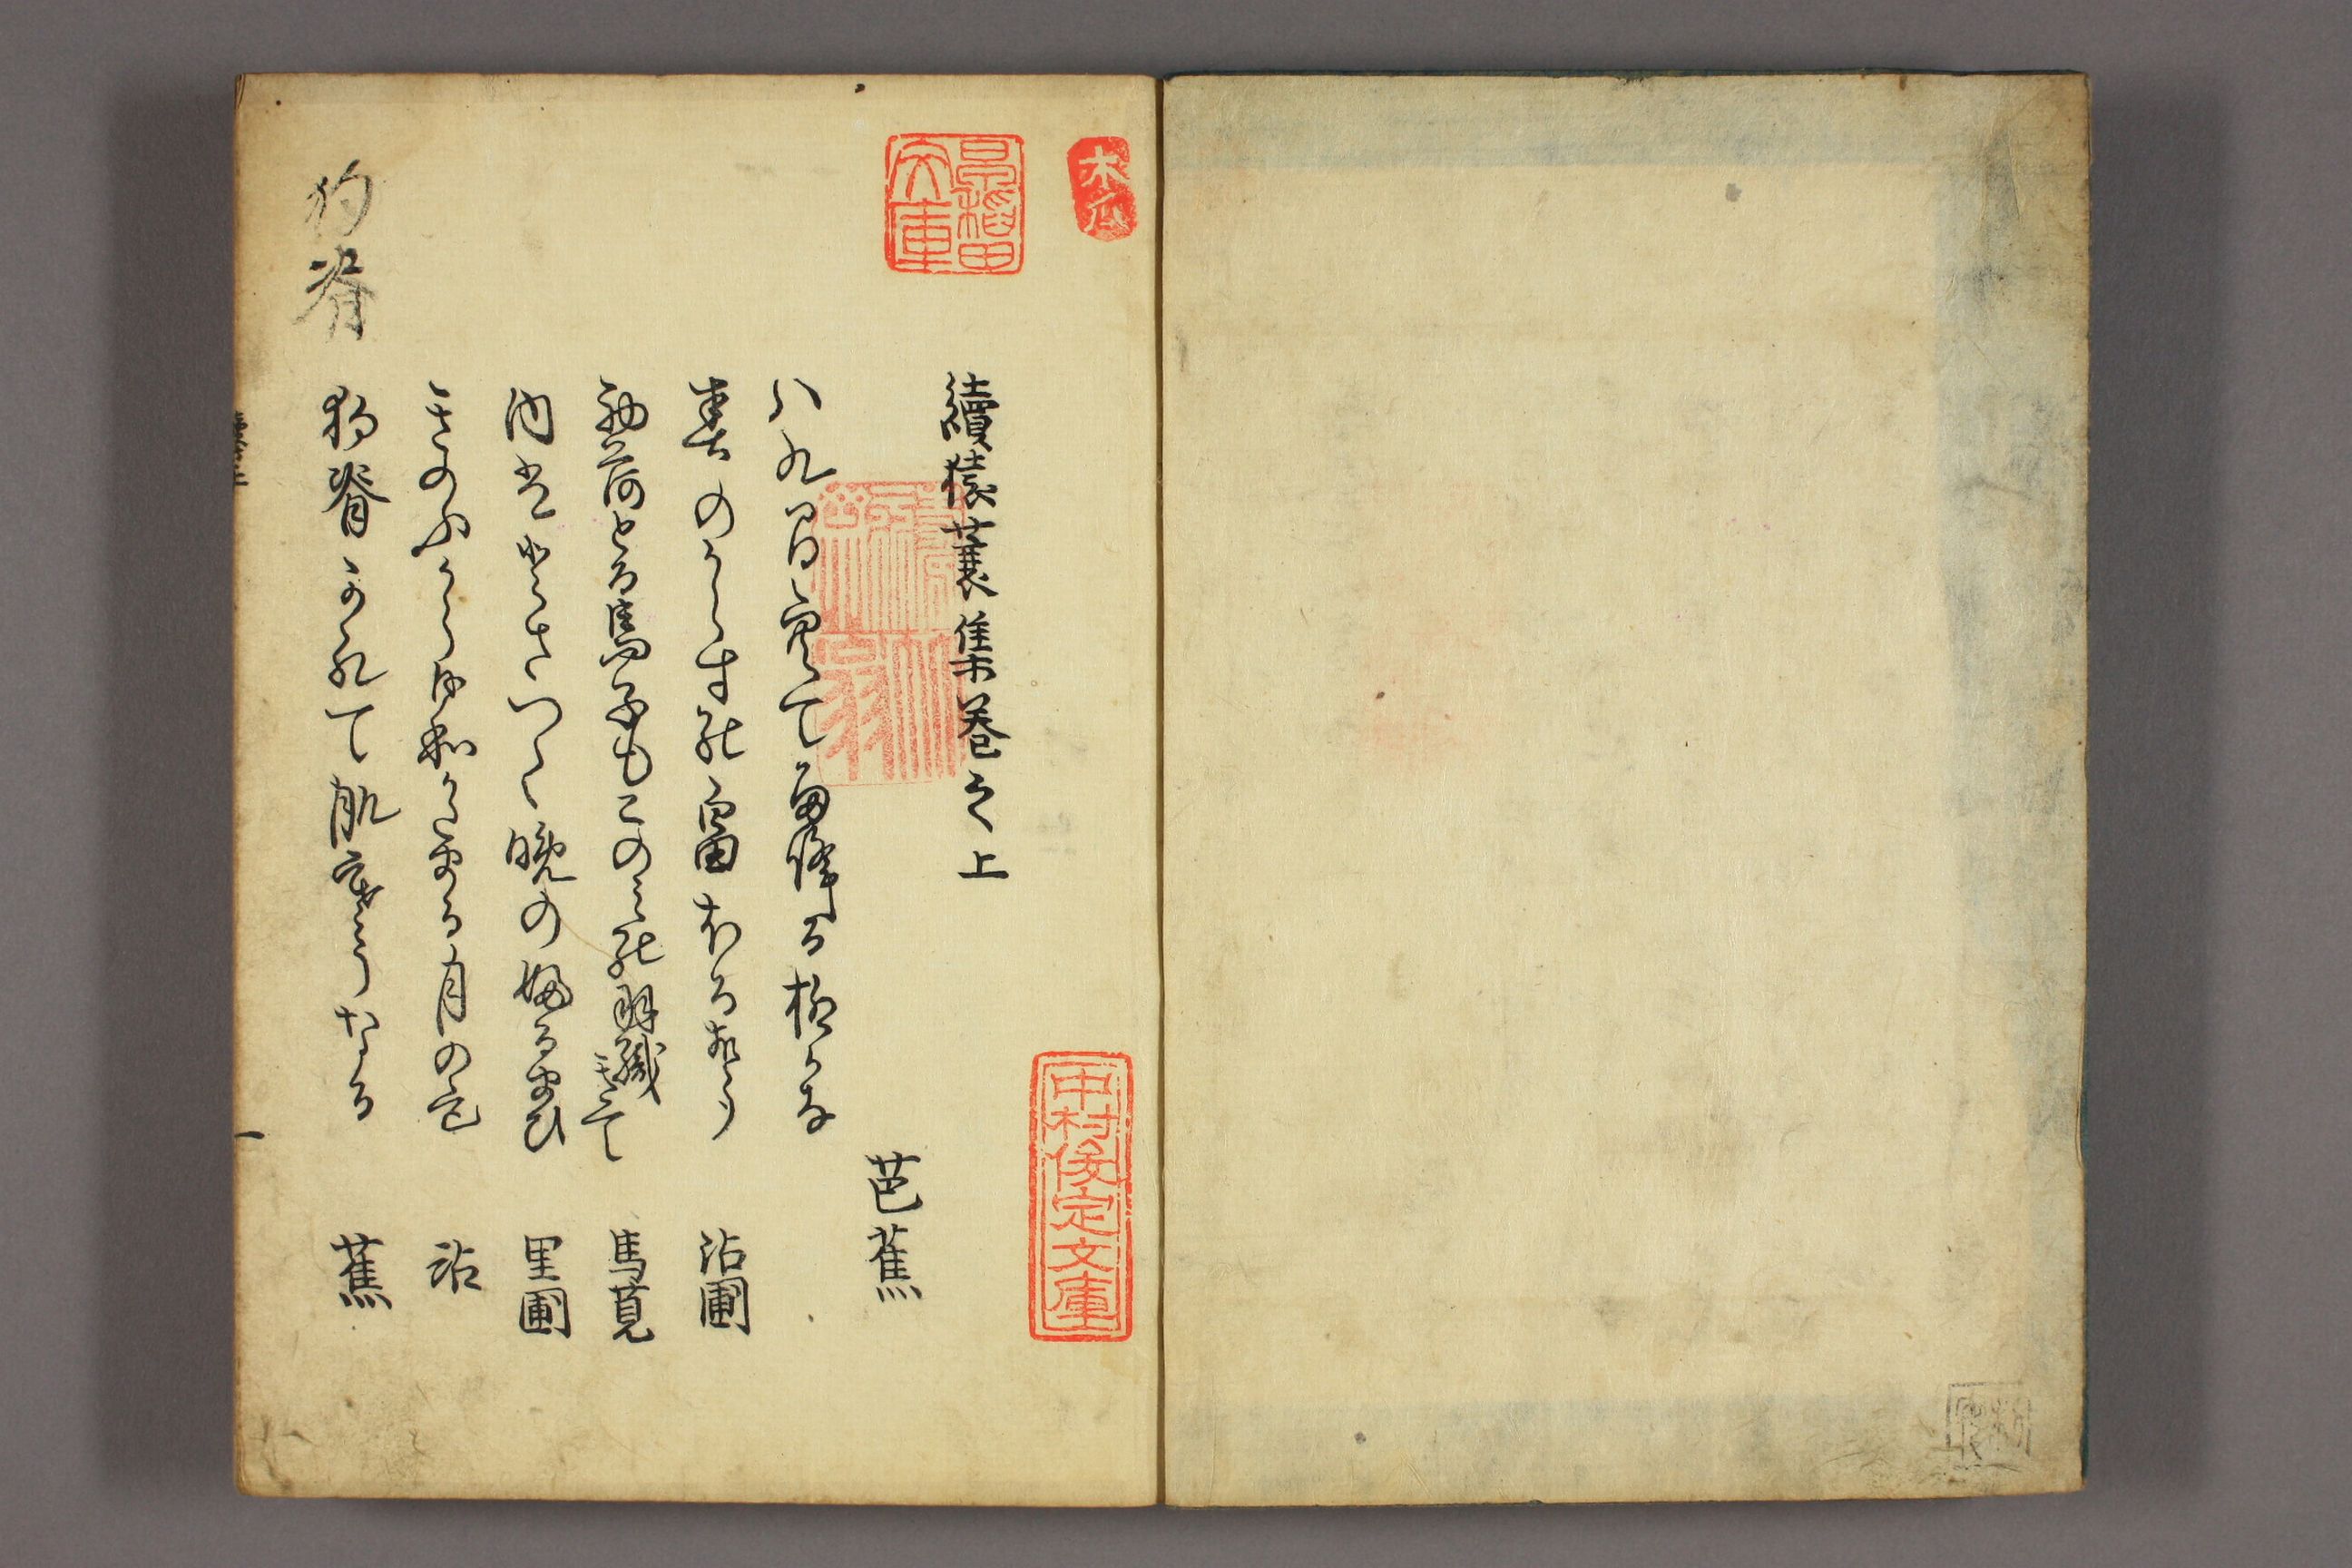 木瓜
早稲田文庫
中村俊定文庫
續猿蓑集巻之上
芭蕉
八九間空て雨降る柳かな
春のからすの畠ほる声 沾圃
初荷とる馬子もこのみの羽織きて 馬莧
内はどさつく晩のふるまひ 里圃
きのふから日和かたまる月の色 沾
狗脊かれて肌寒うなる 蕉
狗脊
一